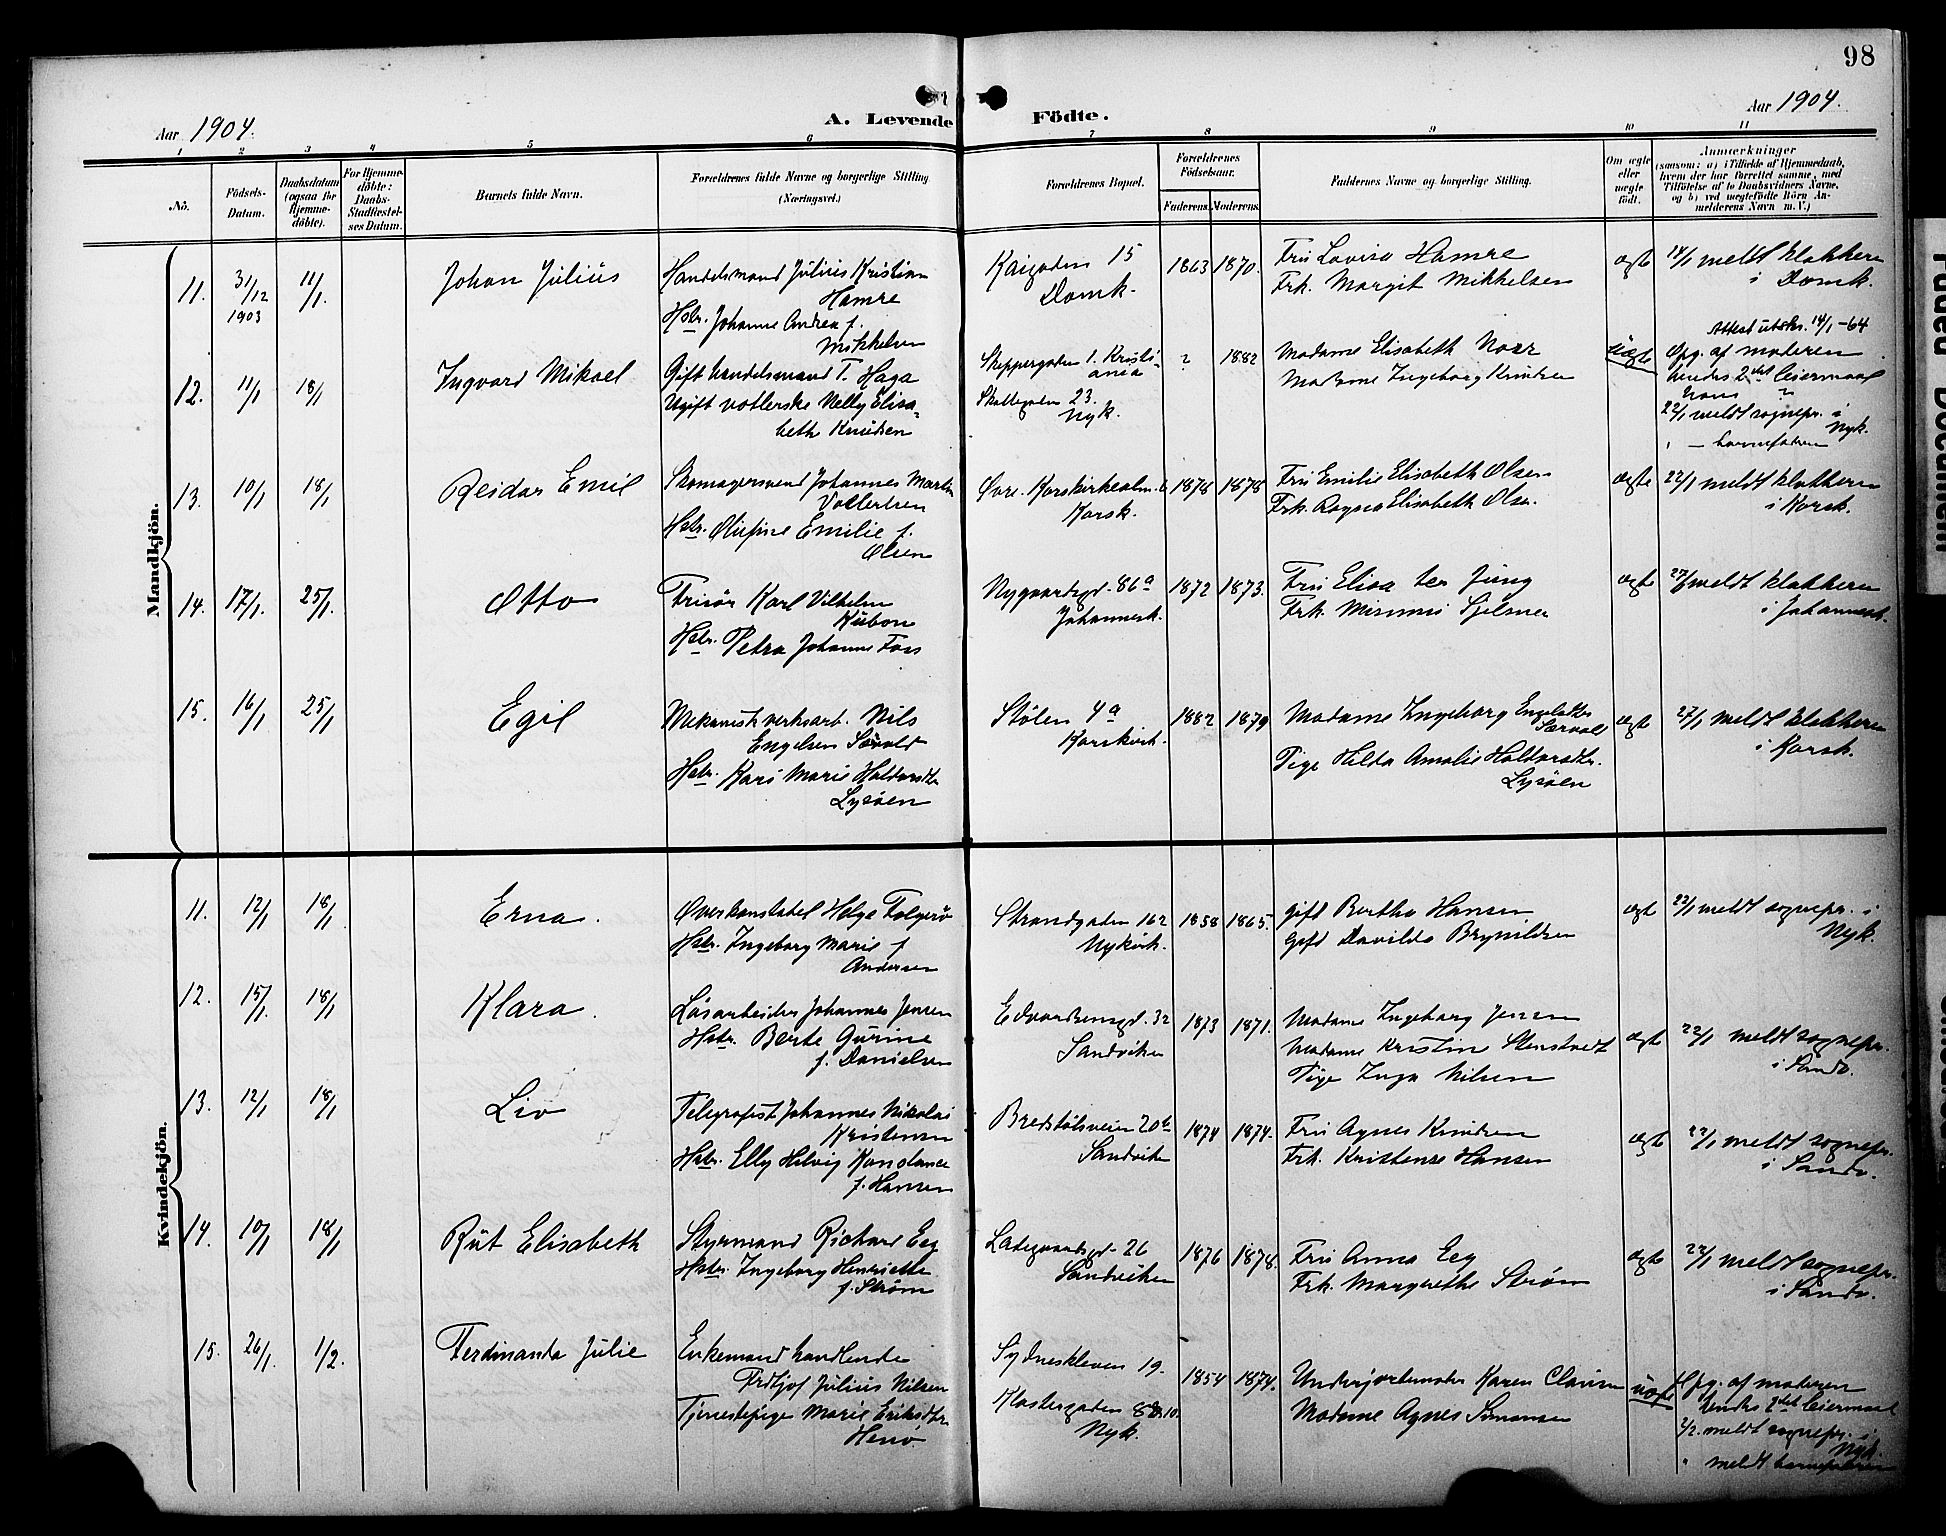 98
Aar 1904.
A. Levende Födte.
Aar 1904.
1 2 3 4 5 6 7 8 9 10 11
No.
Födsels-
Datum.
Daabsdatum
(ogsaa for
Hjemme-
döbte).
For Hjemme-
döbte:
Daabs-
Stadfæstel-
ses Datum.
Barnets fulde Navn.
Forældrenes fulde Navne og borgerlige Stilling
(Næringsvei.)
Forældrenes Bopæl.
Forældrenes
Födselsaar.
Faderens. Moderens.
Faddernes Navne og borgerlige Stilling.
Om ægte
eller
uægte
födt.
Anmærkninger
(saasom: a) i Tilfælde af Hjemmedaab,
hvem der har forrettet samme, med
Tilföielse af to Daabsvidners Navne,
og b) ved uægtefödte Börn An-
melderens Navn m. V.)
Mandkjön.
11. 31/12 1903 11/1 Johan Julius
Handelsmand Julius Kristian
Hamre
Hstr. Johanne Andrea f.
Mikkelsen
Kaigaden 15
Domk.
1863 1870.
Fru Lovisa Hamre
Frk. Margit Mikkelsen
ægte
14/1 meldt klokkeren
i Domk.
Attest utskr. 14/1-64
12. 11/1 18/1 Ingvard Mikael
Gift handelsmand T. Haga
Ugift votterske Nelly Elisa-
beth Knudsen
Skippergaden 1. Kristi-
ania
Skottegaden 23.
Nyk.
? 1882
Madame Elisabeth
Madame Ingeborg Knudsen
uægte
Opg. af moderen
hendes 2det leiermaal
hans ?
22/1 meldt sognepr. i
Nyk.
" — barnefaderen
13. 10/1 18/1 Reidar Emil
Skomagersvend Johannes Martin
Vollertsen
Hstr. Olufine Emilie f.
Olsen
Øvre Korskirkealm. 6
Korsk.
1878 1878
Fru Emilie Elisabeth Olsen
Frk. Ragna Elisabeth Olsen
ægte
22/1 meldt klokkeren
i Korsk.
14. 17/1. 25/1. Otto
Frisör Karl Vilhelm
Kubon
Hstr. Petra Johanne Foss
Nygaardsgd. 86a
Johannesk.
1872 1873.
Fru Elisa ter Jung
Frk. Mimmi
ægte
27/1 meldt klokkeren
i Johannesk.
15. 16/1 25/1 Egil
Mekanisk verksarb. Nils
Engelsen Sævold
Hstr. Kari Marie Haldorsdtr.
Lysöen
Stölen 4a
Korskirk.
1882 1879
Madame Ingeborg Engelsdtr.
Sævold
Pige Hilda Amalie Haldorsdtr.
Lysöen
ægte
27/1 meldt klokkeren
i Korsk.
Kvindekjön.
11. 12/1 18/1 Erna.
Overkonstabel Helge Folgerö
Hstr. Ingeborg Marie f.
Andersen
Strandgaden 162
Nykirk.
1858 1865.
Gift Bertha Hansen
Gift Davilda Brynildsen
ægte
22/1 meldt sognepr. i
Nyk.
12. 15/1. 18/1 Klara.
Løsarbeider Johannes Jensen
Hstr. Berte Gurine
f. Danielsen
Edvardsensgd. 32
Sandviken
1873 1871.
Madame Ingeborg Jensen
Madame Kristin Stenstvedt
Pige Inga Nilsen
ægte
22/1 meldt sognepr.
i Sandv.
13. 12/1 18/1 Liv
Telegrafist Johannes Nikolai
Kristensen
Hstr. Elly Helvig Konstance
f. Hansen
Bredstölsveien 20b
Sandviken
1874 1874.
Fru Agnes Knudsen
Frk. Kristense Hansen
ægte
22/1 meldt sognepr.
i Sandv.
14. 10/1 18/1 Rut Elisabeth
Styrmand Richard Eeg
Hstr. Ingeborg Henriette
f. Strøm
Ladegaardsgd. 26
Sandviken
1876 1878.
Fru Anna Eeg
Frk. Margrethe Strøm
ægte
22/1 meldt sognepr.
i Sandv.
15. 26/1. 1/2. Ferdinanda Julie
Enkemand handlende
Fridtjof Julius Nilsen
Tjenestepige Marie Eriksdtr.
Henø
Sydneskleven 19.
Klostergaden
Nyk.
1854 1874.
Underjordemoder Karen Clausen
Madame Agnes Simonsen
uægte
Opg. af moderen
hendes 2det leiermaal
2/2. meldt sognepr. i
Nyk.
" meldt barnefaderen